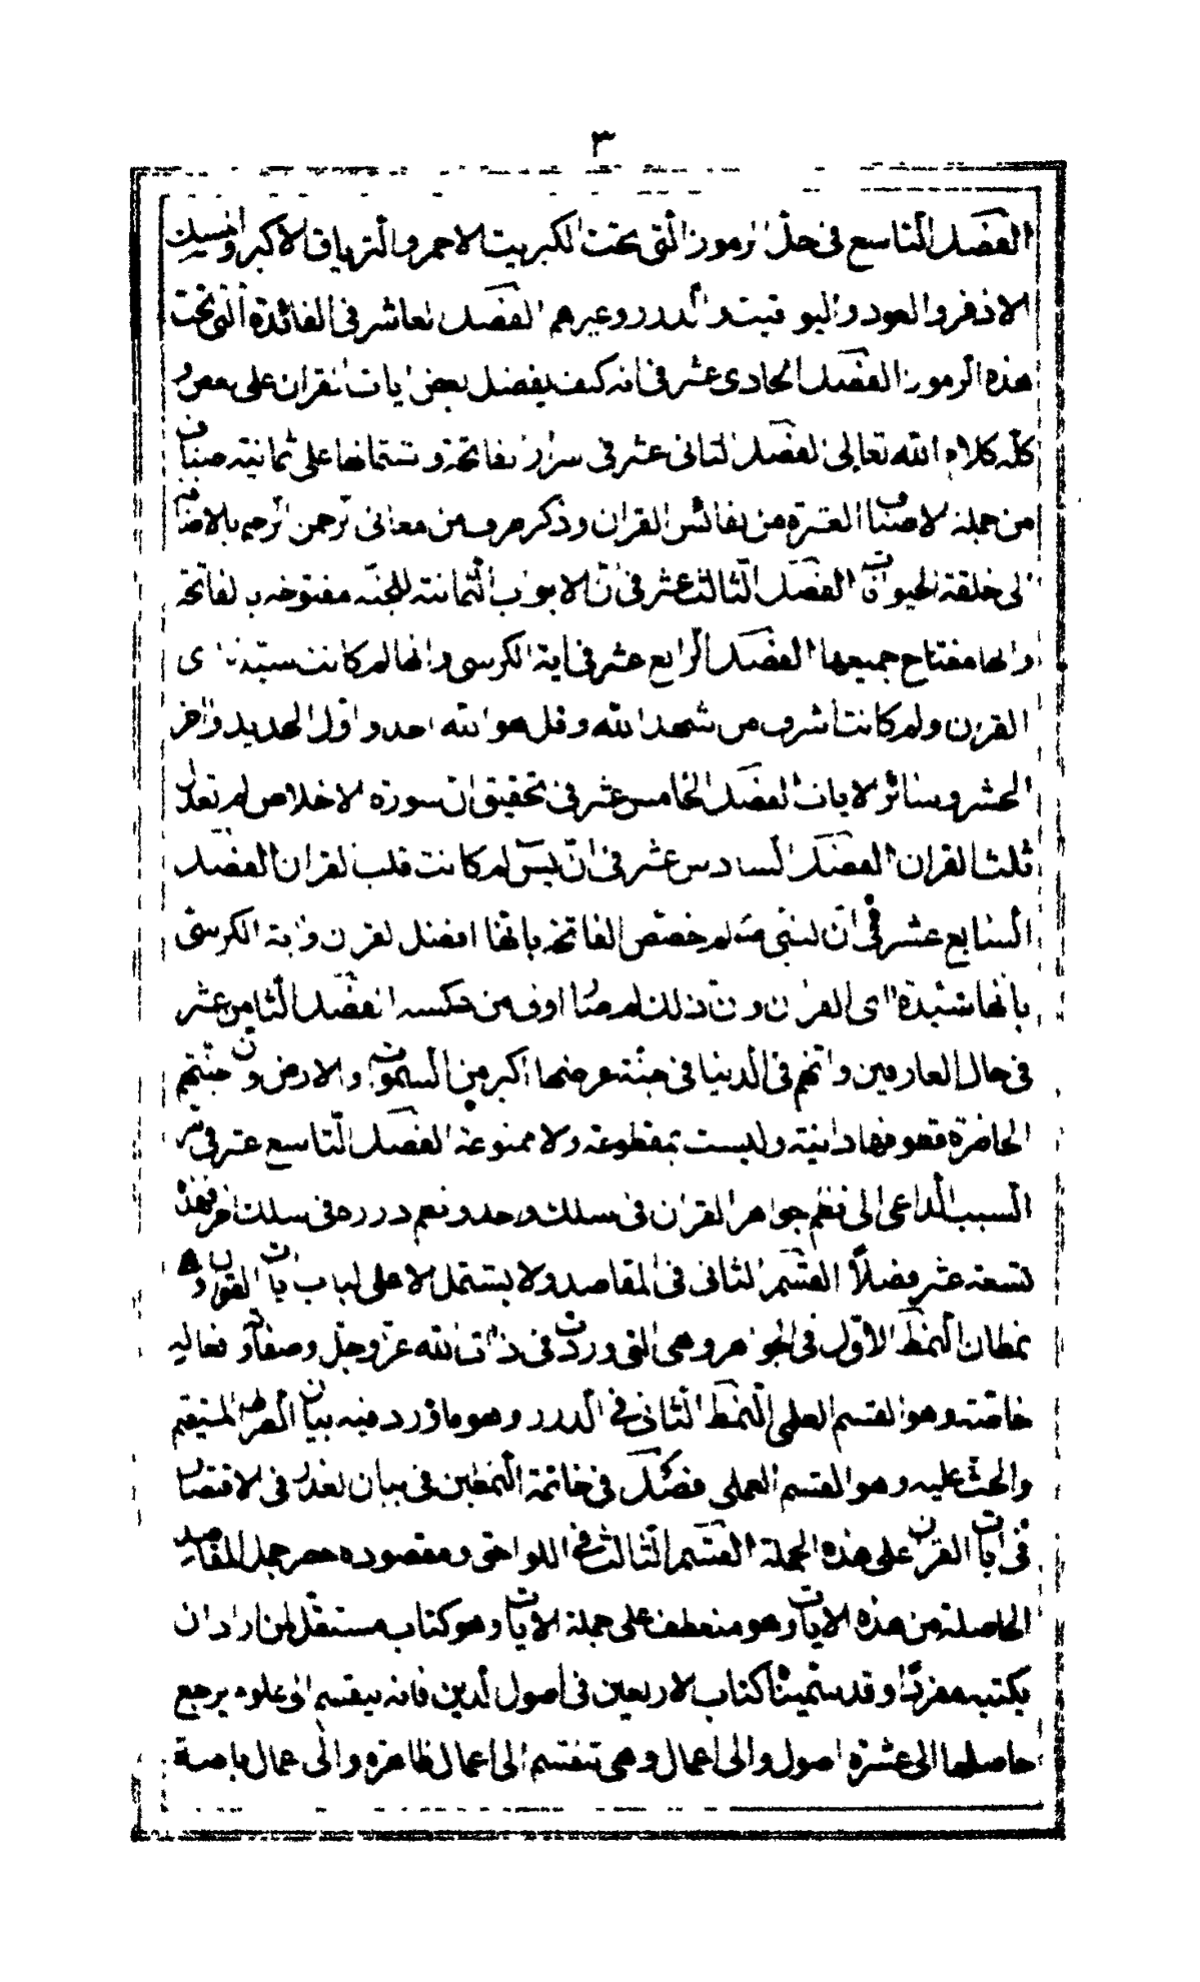 ٣
الفصل التاسع فى حل الرموز التى تحت الكبريت الاحمر والترياق الاكبر والمسك
الاذفر والعود واليواقيت والدرر وغيرهم الفصل العاشر فى الفائدة التى تحت
هذه الرموز الفصل الحادى عشر فى انه كيف يفضل بعض ايات القران على بعض و
كله كلام الله تعالى الفصل الثانى عشر فى اسرار الفاتحة واشتمالها على ثمانية اصناف
من جملة الاصناف العشرة من نفائس القران وذكر طرف من معانى الرحمن الرحيم بالاضافة
الى خلقة الحيوان الفصل الثالث عشر فى ان الابواب الثمانية للجنة مفتوحة بالفاتحة
وانها مفتاح جميعها الفصل الرابع عشر فى اية الكرسى وانها لم كانت سيدة اى
القران ولم كانت اشرف من شهد الله وقل هو الله احد واول الحديد واخر
الحشر وسائر الايات الفصل الخامس عشر فى تحقيق ان سورة الاخلاص لم تعدل
ثلث القران الفصل السادس عشر فى ان يس لم كانت قلب القران الفصل
السابع عشر فى ان النبى صلعم لم خصص الفاتحة بانها افضل القران واية الكرسى
بانها سيدة اى القران وان ذلك لم صار اولى من عكسه الفصل الثامن عشر
فى حال العارفين وانهم فى الدنيا فى جنة عرضها اكبر من السموات والارض وان جنتهم
الحاضرة قطوفها دانية وليست بمقطوعة ولا ممنوعة الفصل التاسع عشر فى سر
السبب الداعى الى نظم جواهر القران فى سلك واحد ونظم درره فى سلك اخر فهذه
تسعة عشر فصلاً القسم الثانى فى المقاصد ولا يشتمل الا على لباب ايات القران وهو
نمطان النمط الاول فى الجواهر وهى التى وردت فى ذات الله عز وجل وصفاته وفعاليه
خاصة وهو القسم العلمى النمط الثانى فى الدرر وهو ما ورد فيه بيان الصراط المستقيم
والحث عليه وهو القسم العملى فصل فى خاتمة النمطين فى بيان العذر فى الاقتصار
فى ايات القران على هذه الجملة القسم الثالث فى اللواحق ومقصوده حصر جمل المقاصد
الحاصلة من هذه الايات وهو منعطف على جملة الايات وهو كتاب مستقل لمن اراد ان
يكتبه مفردًا وقد سميناه كتاب الاربعين فى اصول الدين فانه ينقسم الى علوم يرجع
حاصلها الى عشرة اصول والى اعمال وهى تنقسم الى اعمال ظاهرة والى اعمال باطنة